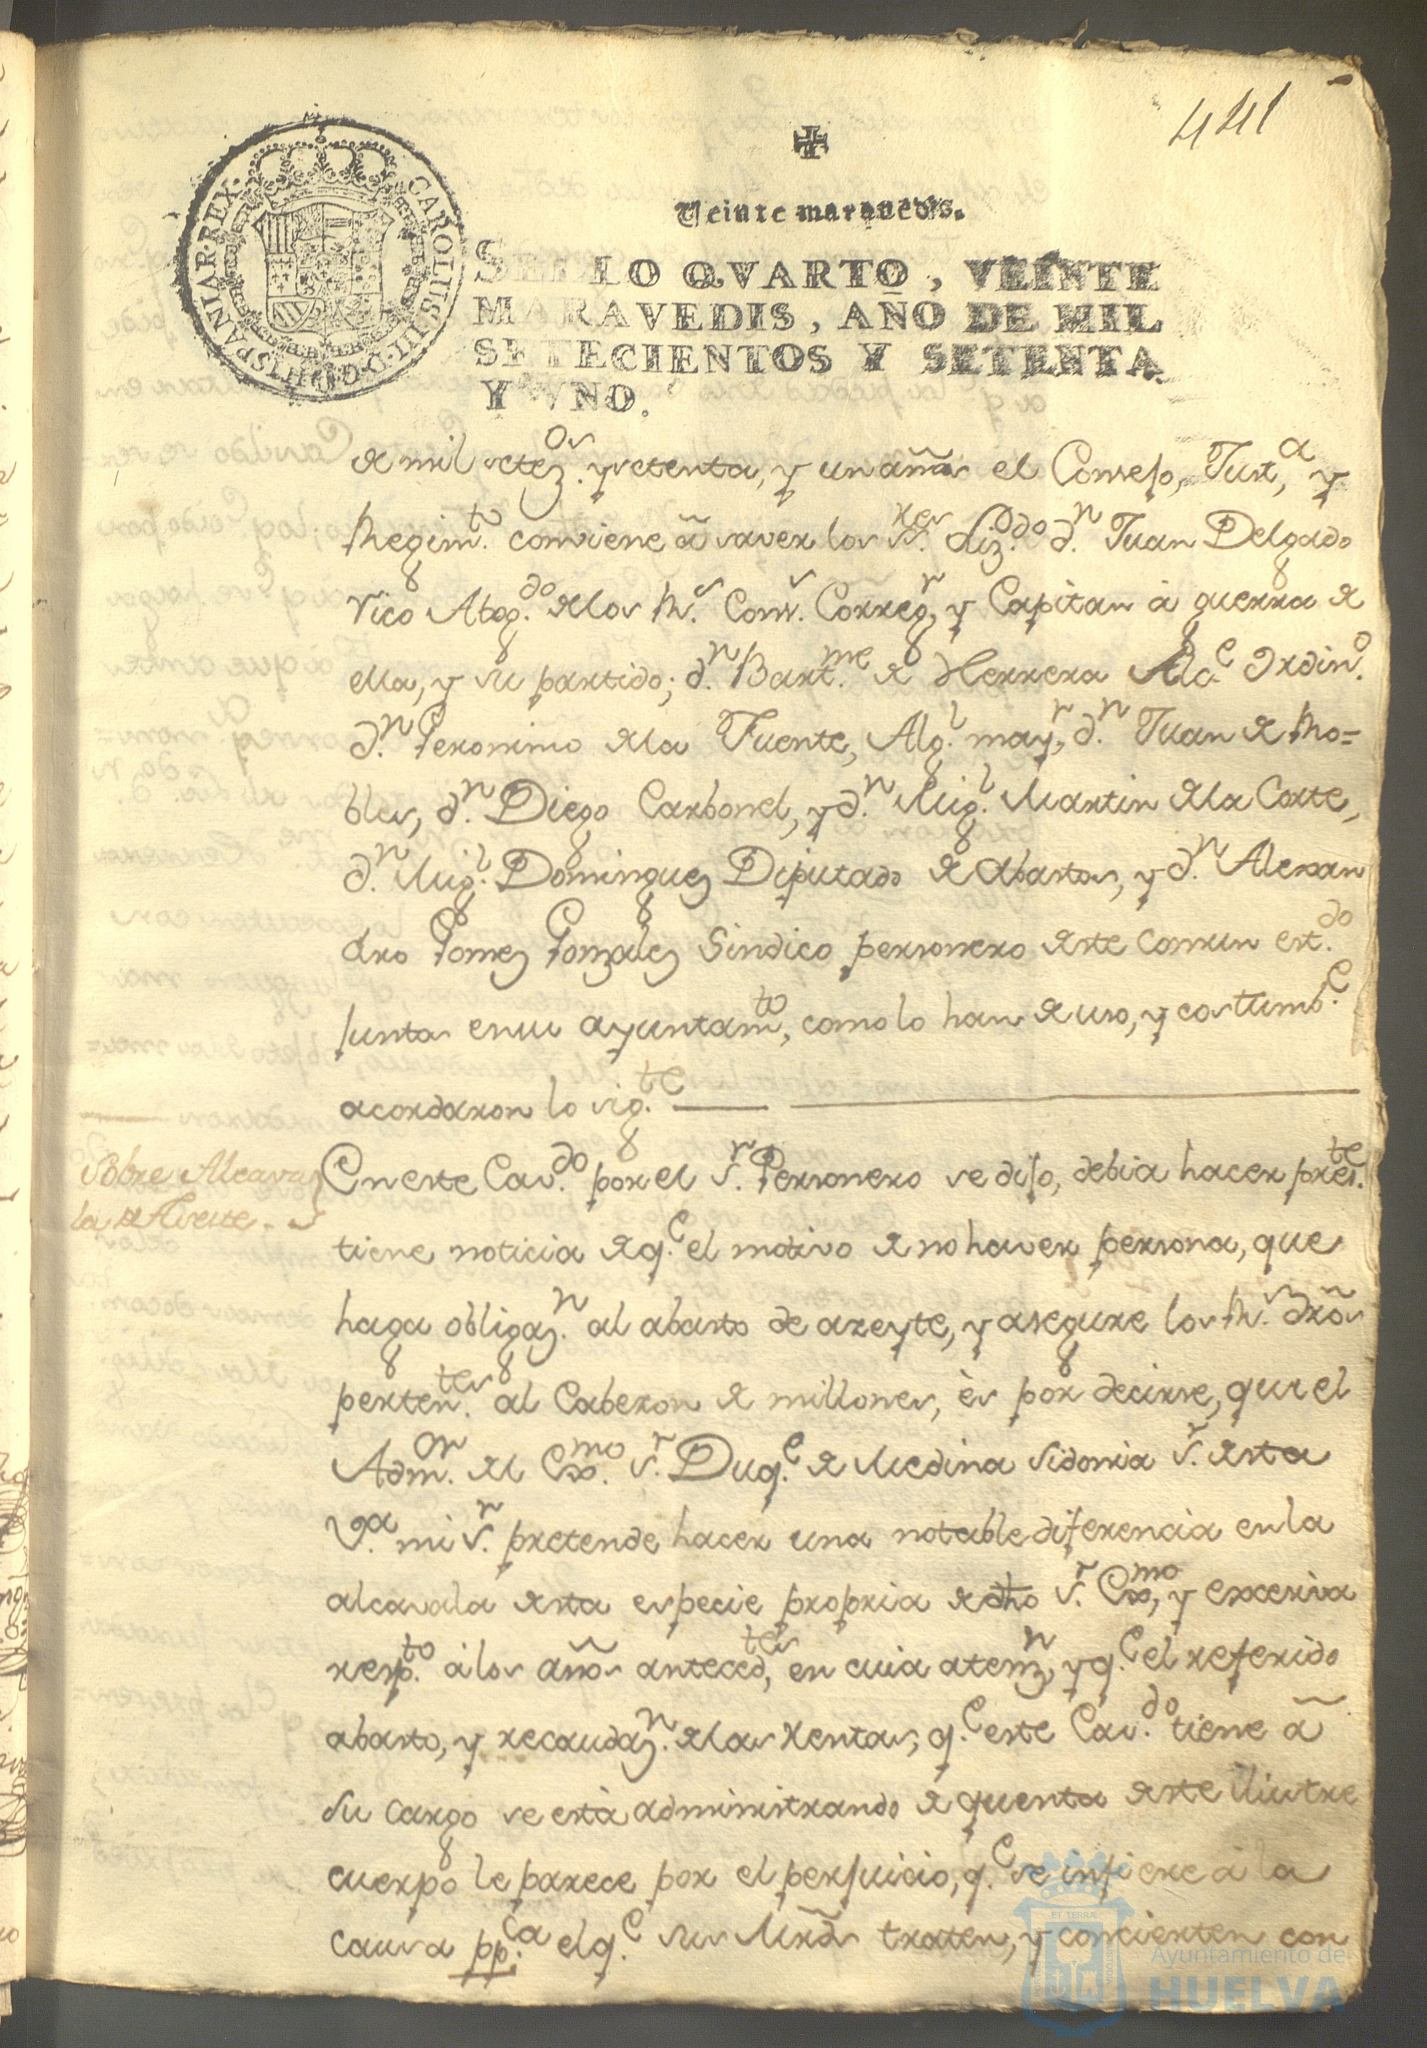 441
Veinte maravedis.
SELLO QVARTO, VEINTE
MARAVEDIS, AÑO DE MIL
SETECIENTOS Y SETENTA
Y VNO.
CAROLUS III D G HISPANIAR REX
de mil setez.os y setenta, y un años el Consejo, Just.a, y
Regim.to conviene â saver los SS.res Liz.do d.n Juan Delgado
Vico Abog.do de los R.s Cons.s Correg.r, y Capitàn à guerra de
ella, y su partido; d.n Bart.me de Herrera Alc.e Ordin.o
d.n Geronimo de la Fuente, Alg.l may.r, d.n Juan de Ro=
bles, d.n Diego Carbonel, y d.n Mig.l Martin de la Corte,
d.n Mig.l Dominguez Diputado de Abastos, y d.n Alexan
dro Gomez Gonzalez Sindico personero de este comun est.do
juntos en su ayuntam.to, como lo han de uso, y costumb.e
acordaron lo sig.te
Sobre Alcava
la de Aceite.
En este Cav.do por el S.r Personero se dijo, debia hacer pres.te
tiene noticia de q.e el motivo de no haver persona, que
haga obligaz.n al abasto de azeyte, y asegure los R.s dros
perten.tes al Cabezon de millones, ès por decirse, que el
Adm.or del Exmo S.r Duq.e de Medina Sidonia S.r de esta
V.a mi S.r pretende hacer una notable diferencia en la
alcavala de esta especie propria de dho S.r Exmo, y excesiva
resp.to à los años anteced.tes, en cuia atenz.n, y q.e el referido
abasto, y recaudaz.n de las rentas, q.e este Cav.do tiene â
su cargo se està administrando de quenta de este ilustre
cuerpo le parece por el perjuicio, q.e se infiere à la
causa pp.ca el q.e sus Mrds traten, y concierten con
ET TERRÆ
Ayuntamiento de
HUELVA